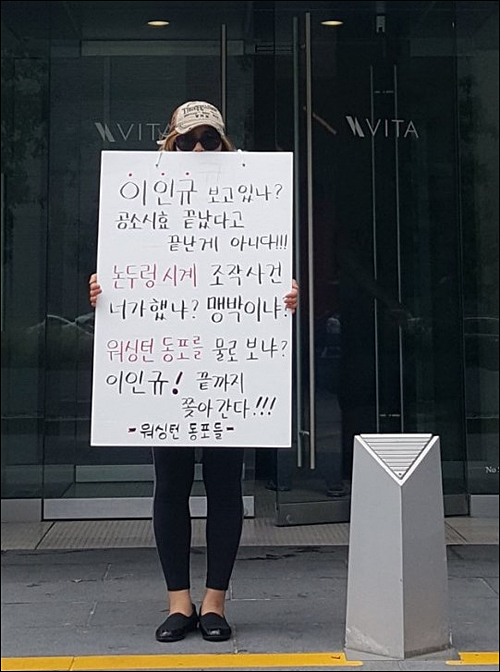 VITA
VITA
이인규 보고있나?
공소시효 끝났다고
끝난게 아니다!!!
논두렁시계 조작사건
너가했냐? 맹박이냐?
워싱턴 동포를 물로 보냐?
이인규! 끝까지
쫓아간다!!!
-워싱턴 동포들-
No